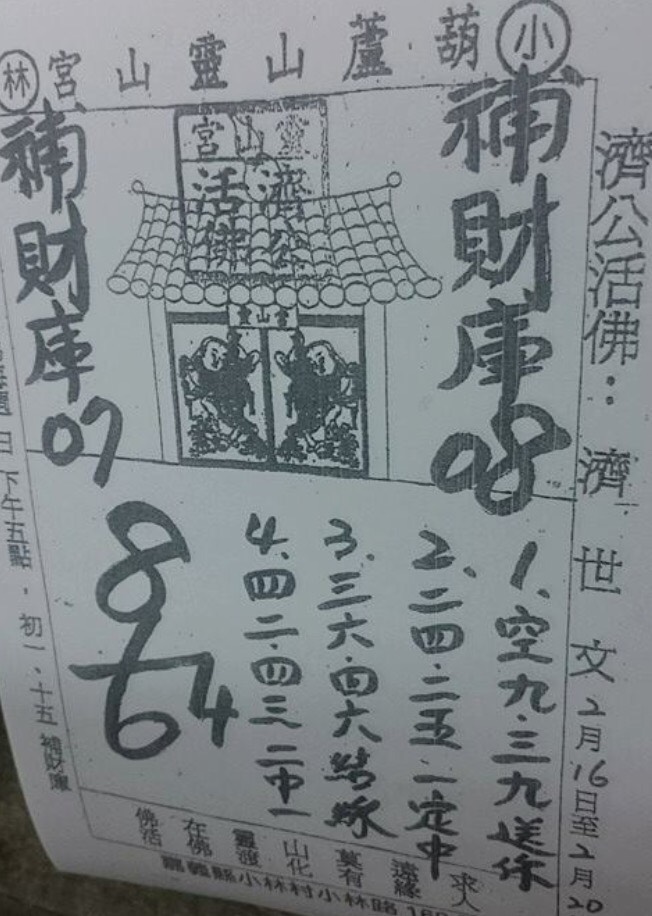 小 葫蘆山靈山宮 林
濟公活佛：濟世文 2月16日至2月20
補財庫08
靈山宮
濟公
活佛
靈山宮
補財庫07
1、空九·三九送你
2、二四·二五一定中
3、三六·四六結緣
4、四二·四三二中一
8
64
日下午五點，初一、十五 補財庫
求人
遠緣
莫有
山化
靈渡
在佛
佛活
嘉義縣小林村小林路